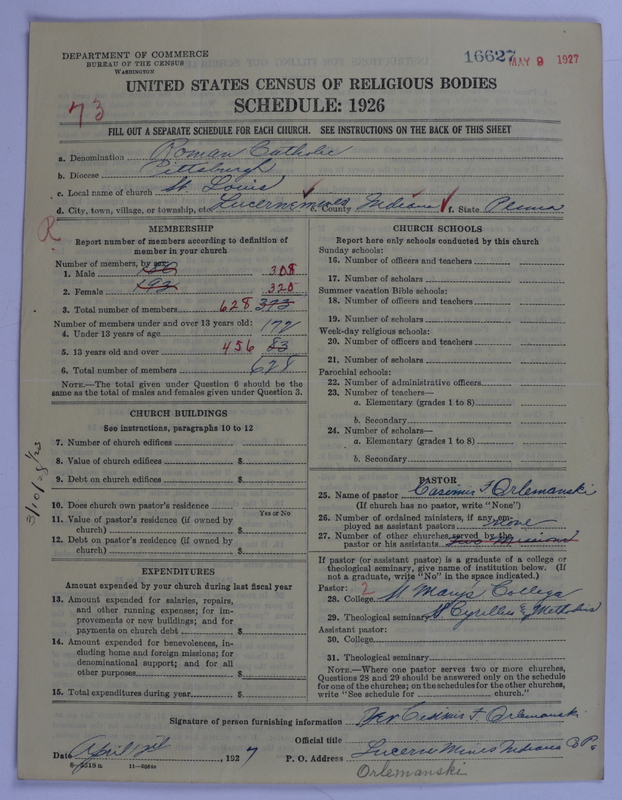 DEPARTMENT OF COMMERCE
BUREAU OF THE CENSUS
WASHINGTON
16627
MAY 9 1927
UNITED STATES CENSUS OF RELIGIOUS BODIES
SCHEDULE: 1926
73
FILL OUT A SEPARATE SCHEDULE FOR EACH CHURCH. SEE INSTRUCTIONS ON THE BACK OF THIS SHEET
a. Denomination Roman Catholic
b. Diocese Pittsburgh
c. Local name of church St. Louis
d. City, town, village, or township, etc. Lucernemines e. County Indiana f. State Penna
R
MEMBERSHIP
Report number of members according to definition of
member in your church
Number of members, by sex:
1. Male 308
2. Female 193 320
3. Total number of members 628 373
Number of members under and over 13 years old:
4. Under 13 years of age 172
5. 13 years old and over 456 83
6. Total number of members 628
NOTE.—The total given under Question 6 should be the
same as the total of males and females given under Question 3.
CHURCH BUILDINGS
See instructions, paragraphs 10 to 12
7. Number of church edifices
8. Value of church edifices $
9. Debt on church edifices $
10. Does church own pastor's residence
Yes or No
11. Value of pastor's residence (if owned by
church) $
12. Debt on pastor's residence (if owned by
church) $
EXPENDITURES
Amount expended by your church during last fiscal year
13. Amount expended for salaries, repairs,
and other running expenses; for im-
provements or new buildings; and for
payments on church debt $
14. Amount expended for benevolences, in-
cluding home and foreign missions; for
denominational support; and for all
other purposes $
15. Total expenditures during year $
CHURCH SCHOOLS
Report here only schools conducted by this church
Sunday schools:
16. Number of officers and teachers
17. Number of scholars
Summer vacation Bible schools:
18. Number of officers and teachers
19. Number of scholars
Week-day religious schools:
20. Number of officers and teachers
21. Number of scholars
Parochial schools:
22. Number of administrative officers
23. Number of teachers—
a. Elementary (grades 1 to 8)
b. Secondary
24. Number of scholars—
a. Elementary (grades 1 to 8)
b. Secondary
PASTOR
25. Name of pastor Casimir F Orlemanski
(If church has no pastor, write "None")
26. Number of ordained ministers, if any, em-
ployed as assistant pastors none
27. Number of other churches served by the
pastor or his assistants two Missions
If pastor (or assistant pastor) is a graduate of a college or
theological seminary, give name of institution below. (If
not a graduate, write "No" in the space indicated.)
Pastor: 2
28. College St Marys College
29. Theological seminary St Cyrillus & Methodius
Assistant pastor:
30. College
31. Theological seminary
NOTE.—Where one pastor serves two or more churches,
Questions 28 and 29 should be answered only on the schedule
for one of the churches; on the schedules for the other churches,
write "See schedule for church."
Signature of person furnishing information Rev Casimir F. Orlemanski
Official title
Date April 1927 P. O. Address Lucerne Mines Indiana Co Pa
8—5518a 11—8684a
Orlemanski